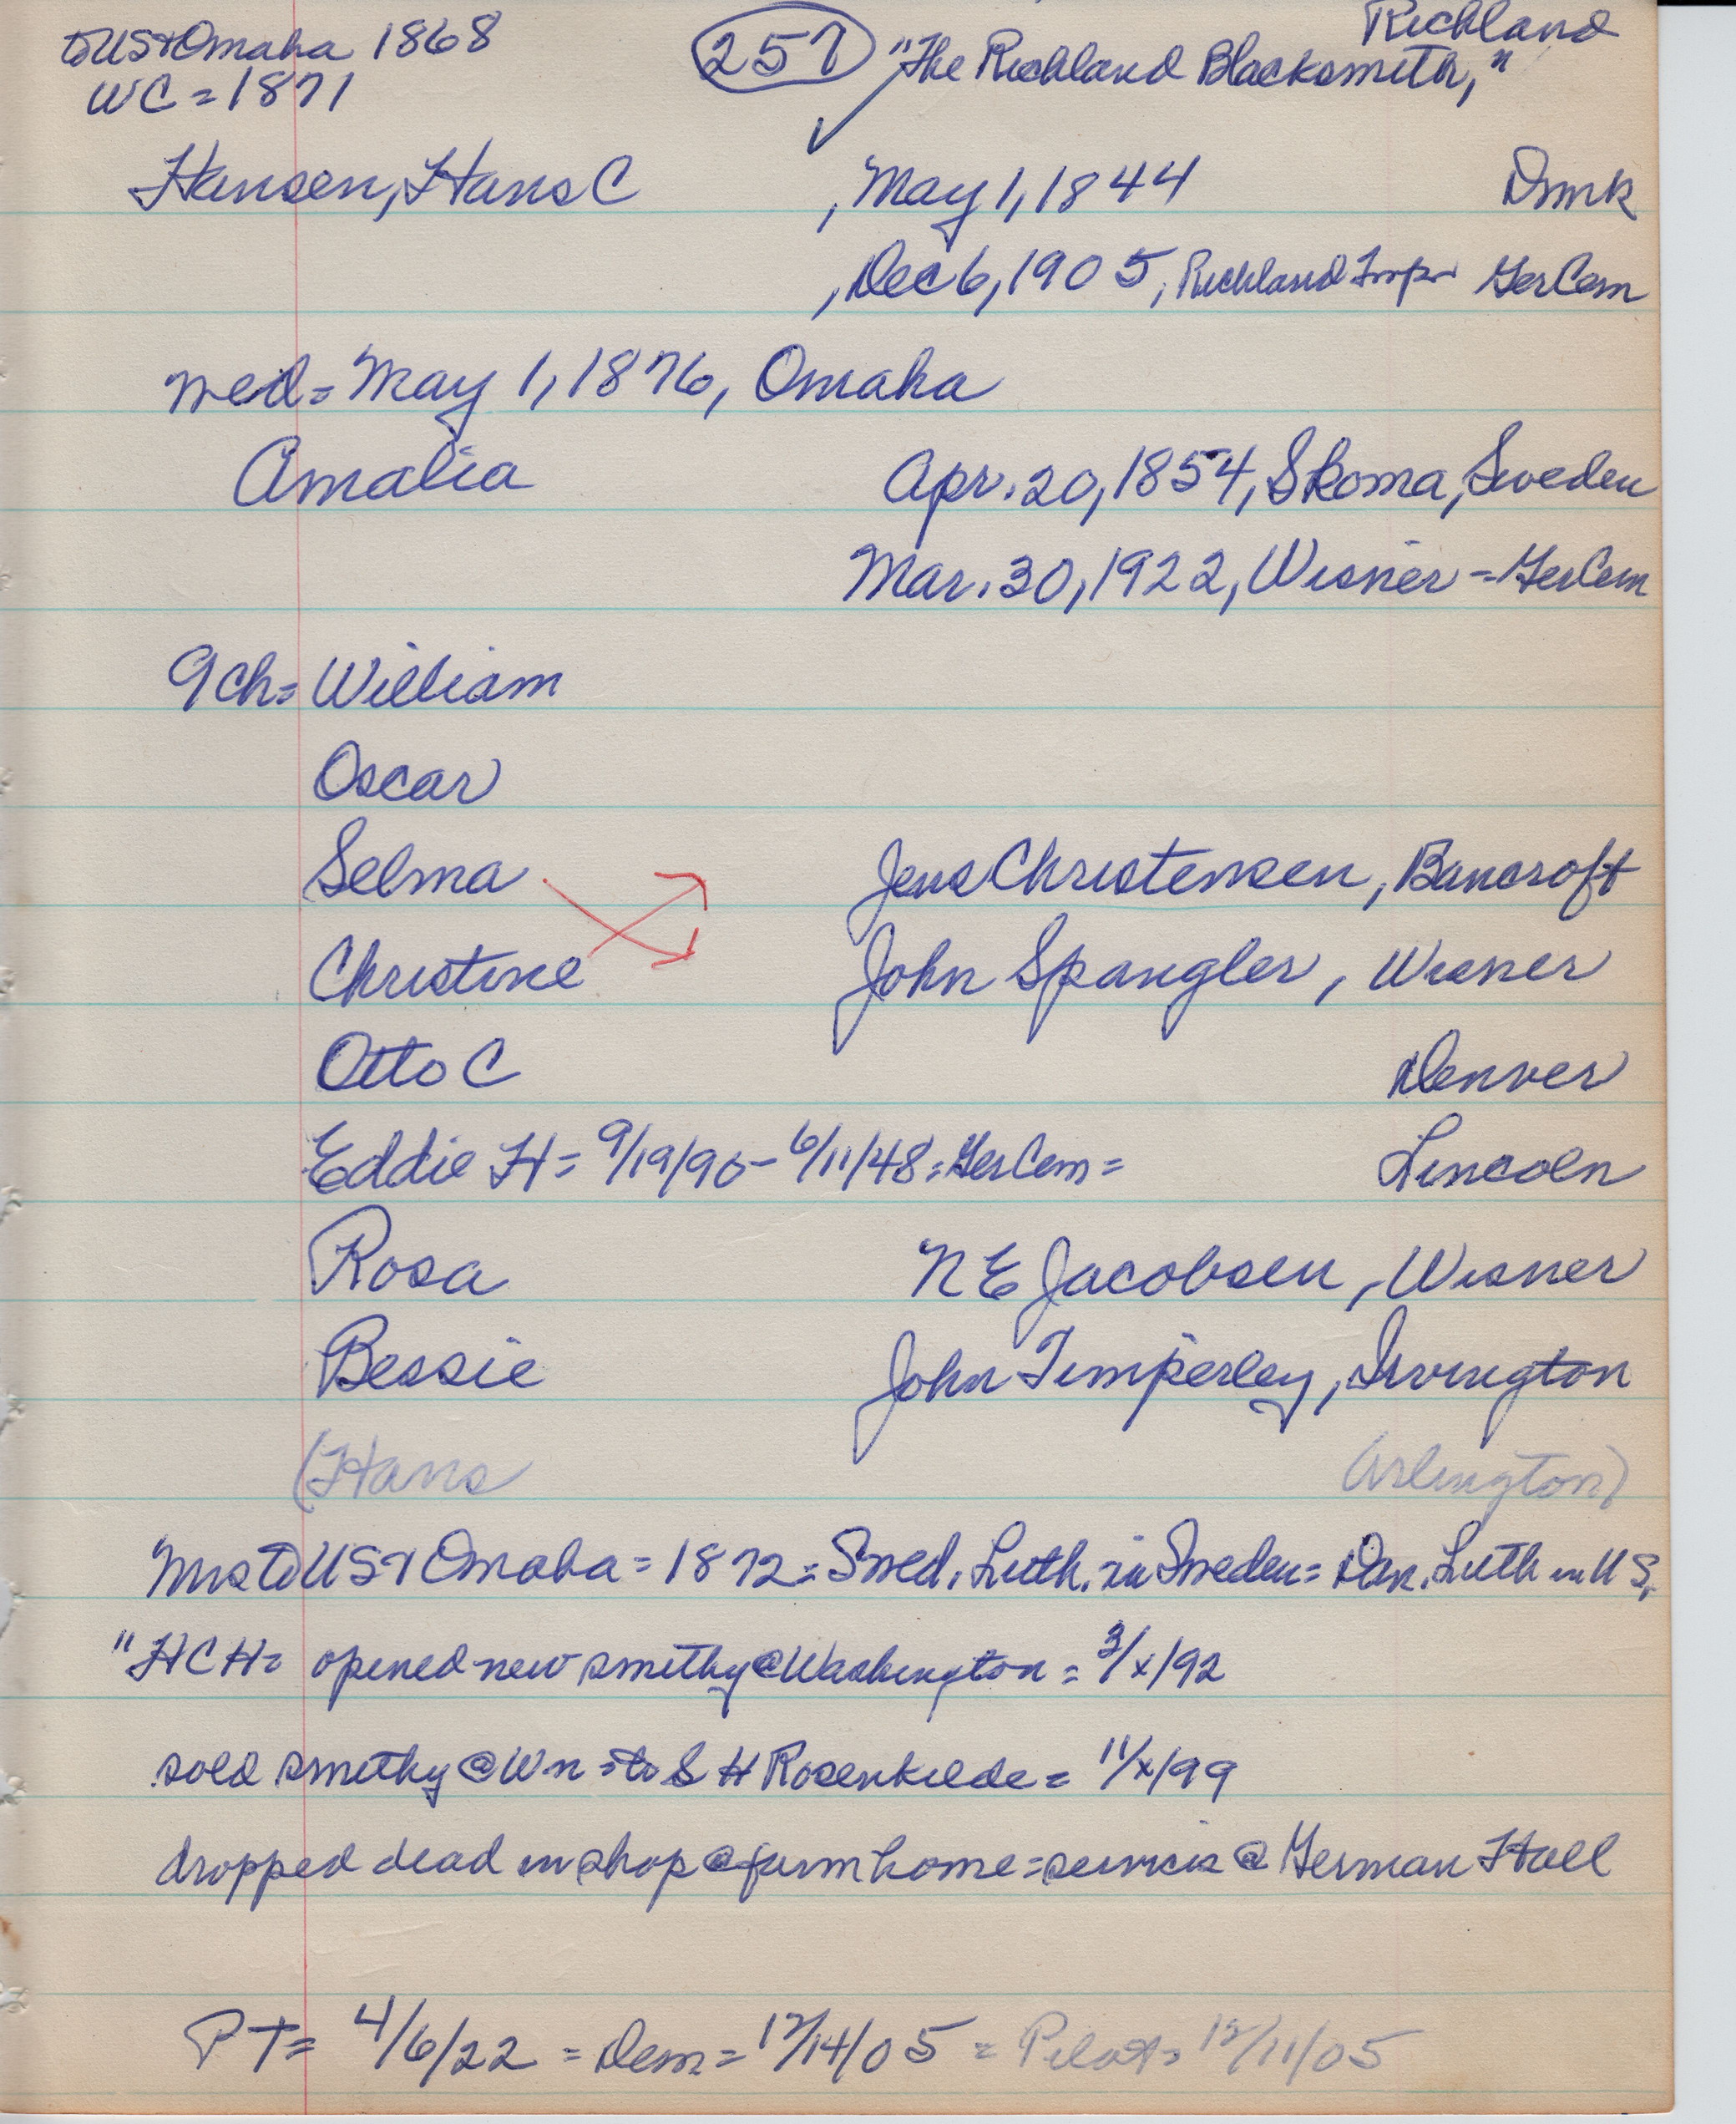 Richland
to US + Omaha 1868 257 "The Richland Blacksmith,"
WC = 1871
Hansen, Hans C , May 1, 1844 Dnmk
, Dec 6, 1905, Richland Twp - Ger Cem
wed = May 1, 1876, Omaha
Amalia Apr. 20, 1854, Skoma, Sweden
Mar. 30, 1922, Wisner - Ger Cem
9 ch = William
Oscar
Selma Jens Christensen, Bancroft
Christine John Spangler, Wisner
Otto C Denver
Eddie H = 9/19/90 - 6/11/48 = Ger Cem = Lincoln
Rosa N E Jacobsen, Wisner
Bessie John Timperley, Irvington
(Hans Arlington)
Mrs to US + Omaha = 1872 = Swed. Luth. in Sweden = Dan. Luth in U S.
"HCH = opened new smithy @ Washington = 3/x/92
sold smithy @ Wn = to S H Rosenkilde = 11/x/99
dropped dead in shop @ farm home = services @ German Hall
PT = 4/6/22 = Dem = 12/14/05 = Pilot = 12/11/05